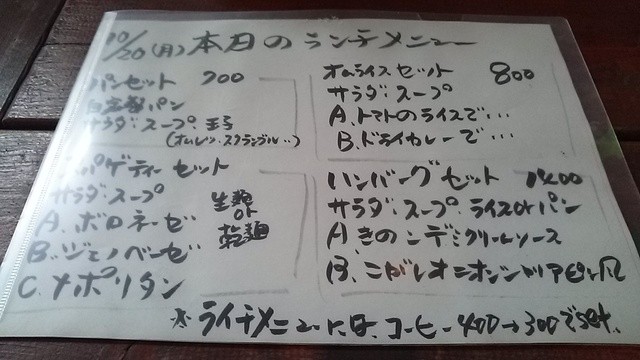 10/20(月)本日のランチメニュー
パンセット 700
自家製パン
サラダ・スープ・玉子
(オムレツ・スクランブル‥)
オムライスセット 800
サラダ・スープ
A.トマトのライスで・・・
B.ドライカレーで・・・
スパゲティーセット
サラダ・スープ
A.ボロネーゼ
B.ジェノベーゼ
C.ナポリタン
生麺
or
乾麺
ハンバーグセット 1400
サラダ・スープ・ライスorパン
Aきのこデミクリームソース
B.こがしオニオン
※ランチメニューには、コーヒー400→300でset.